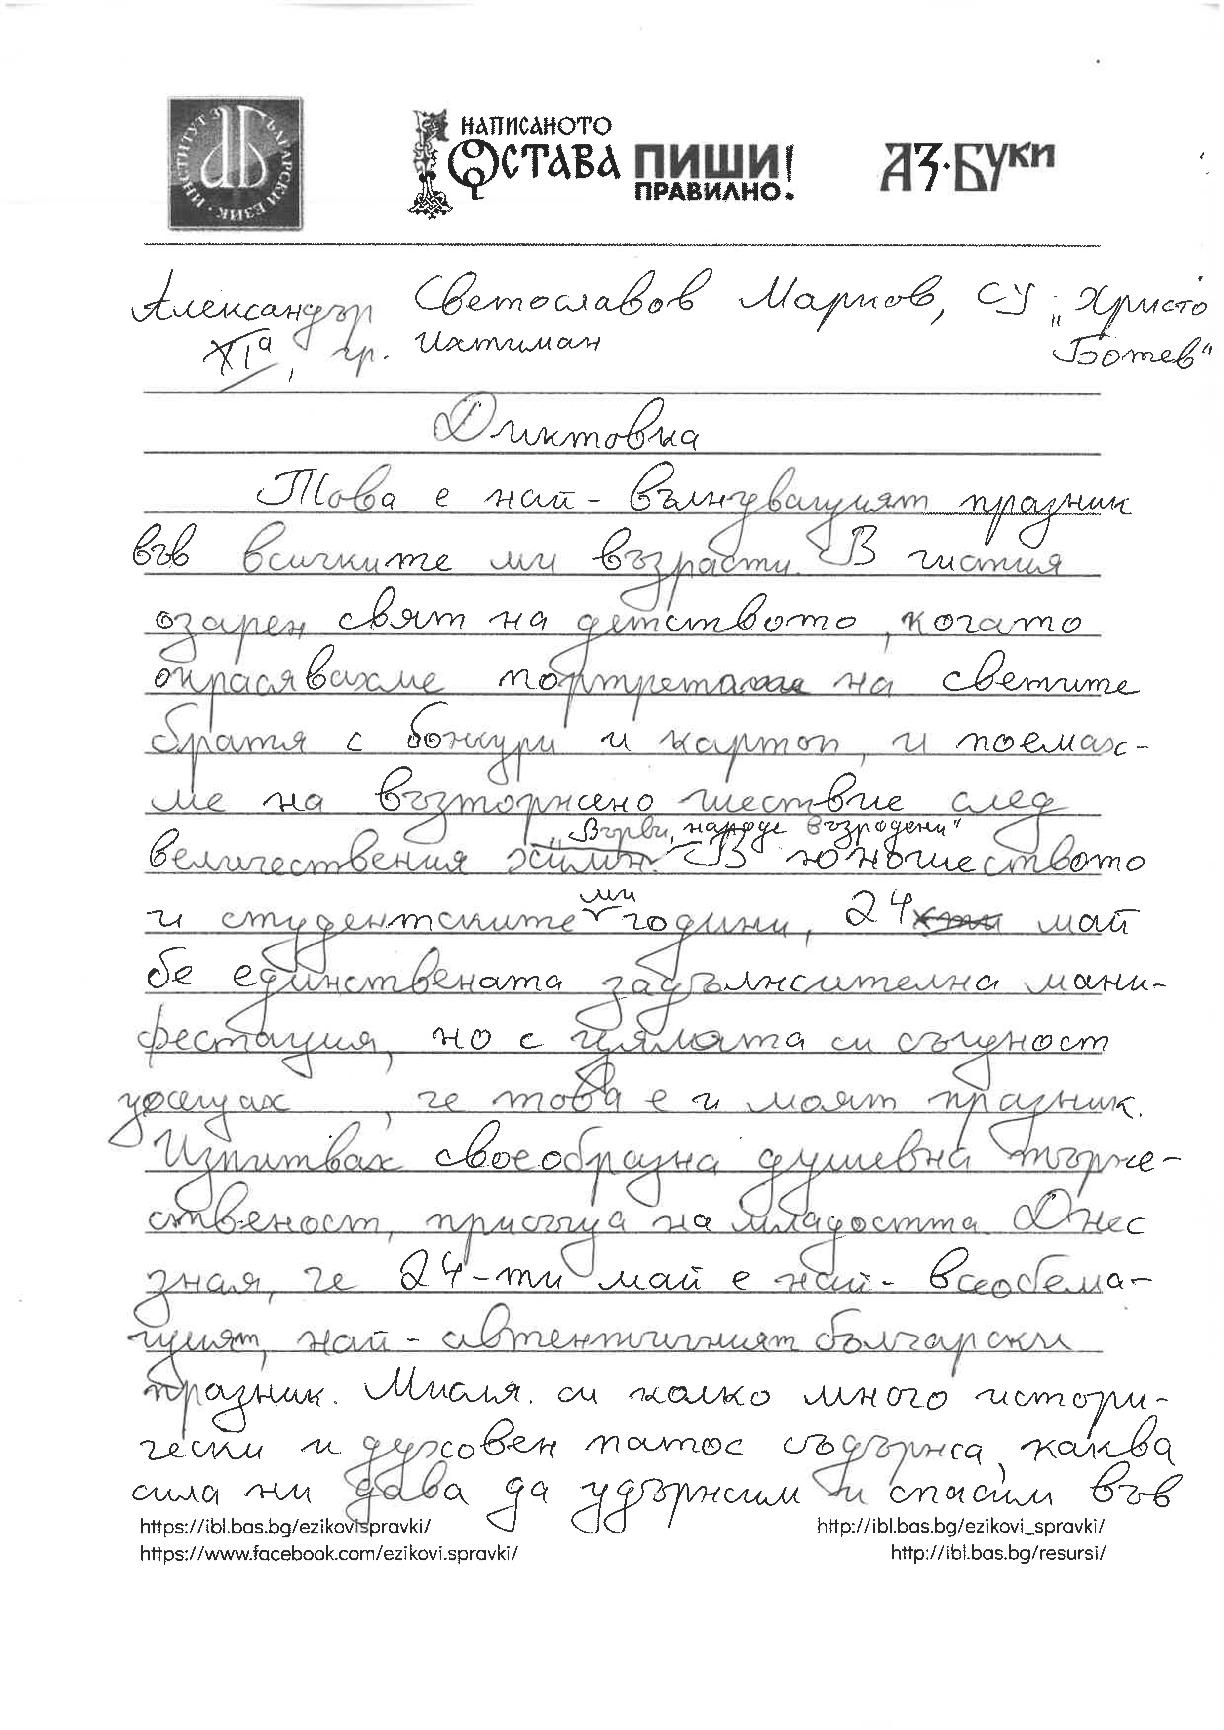 ИНСТИТУТ ЗА БЪЛГАРСКИ ЕЗИК
НАПИСАНОТО
ОСТАВА ПИШИ!
ПРАВИЛНО.
АЗ·БУКИ
Александър Светославов Марков, СУ „Христо
XIа, гр. Ихтиман Ботев“
Диктовка
Това е най-вълнуващият празник
във всичките ми възрасти. В чистия
озарен свят на детството, когато
окрасявахме портрета на светите
братя с божури и картоп, и поемах-
ме на възторжено шествие след
„Върви, народе възродени“
величествения химн. В юношеството
ми
и студентските години, 24 май
бе единствената задължителна мани-
фестация, но с цялата си същност
усещах, че това е и моят празник.
Изпитвах своеобразна душевна търже-
ственост, присъща на младостта. Днес
зная, че 24-ти май е най-всеобема-
щият, най-автентичният български
празник. Мисля си колко много истори-
чески и духовен патос съдържа, каква
сила ни дава да удържим и спасим във
https://ibl.bas.bg/ezikovispravki/ http://ibl.bas.bg/ezikovi_spravki/
https://www.facebook.com/ezikovi.spravki/ http://ibl.bas.bg/resursi/